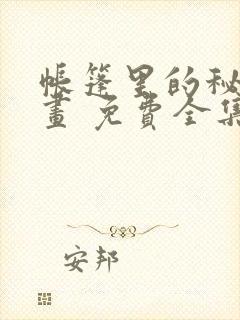 帐篷里的秘
画 免费全集
安邦